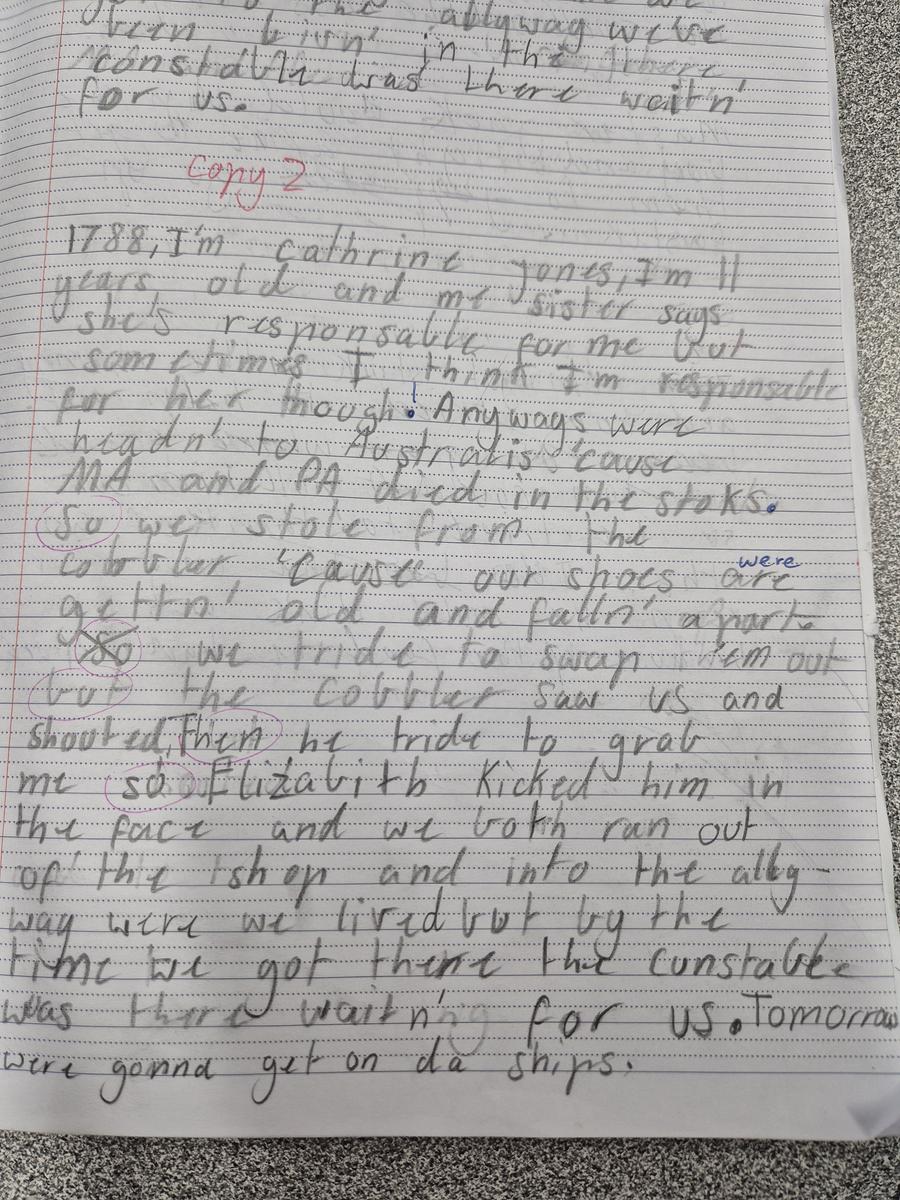 the ablyway were
been livn' in the there
constable was there waitn'
for us.
Copy 2
1788, I'm Cathrine Jones, I'm 11
years old and me sister says
she's responsable for me but
sometimes I think I'm responsable
for her though! Anyways were
headn' to Australis 'cause
MA and PA died in the stoks.
So we stole from the
cobbler 'cause' our shoes are were
gettn' old and falln' apart.
So we tride to swap 'em out
but the cobbler saw us and
shouted, Then he tride to grab
me so Elizabith kicked him in
the face and we both ran out
of the shop and into the ally-
way were we lived but by the
time we got there the constable
was there waitn' for us. Tomorrow
were gonna get on da ships.